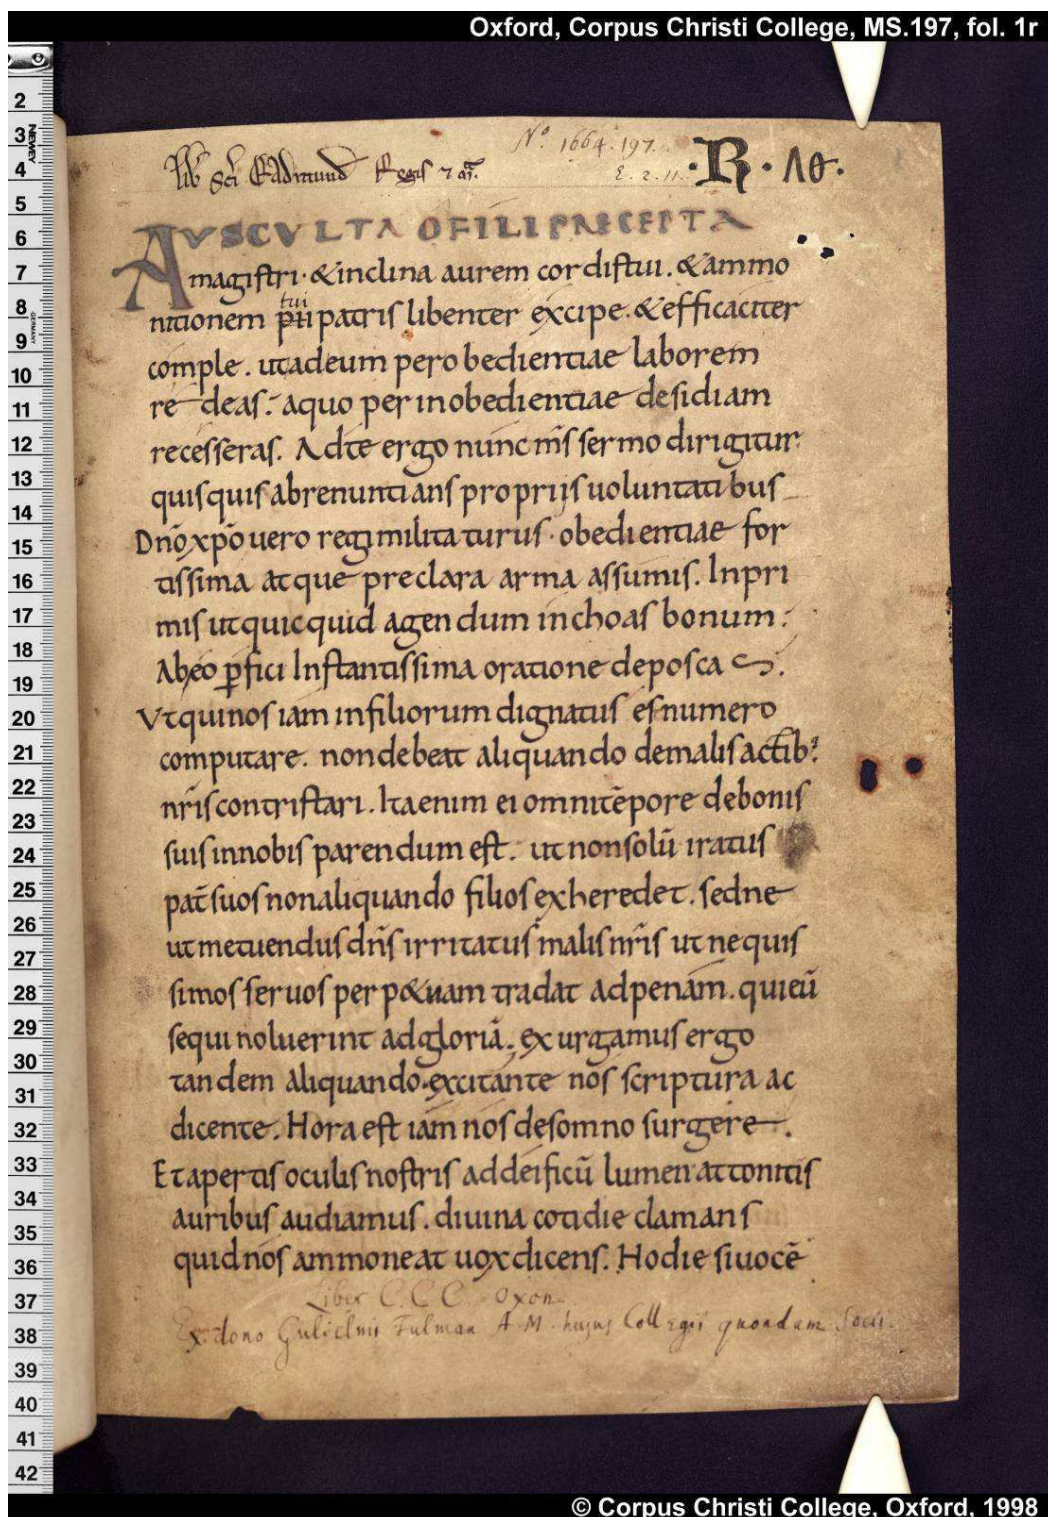 Oxford, Corpus Christi College, MS.197, fol. 1r
Nº 1664. 197.
lib̄ sc̄i Eadmund Regis ⁊
E. 2. 11.
·R· Λθ.
AVSCVLTA OFILI PRECEPTA
magistri· &inclina aurem cordistui. &ammo
tui
nitionem pii patris libenter excipe. &efficaciter
comple. utadeum perobedientiae laborem
redeas. aquo perinobedientiae desidiam
recesseras. Adte ergo nunc m̄s sermo dirigitur
quisquis abrenuntians proprijs uoluntatibus
Dn̄o xp̄o uero regi militaturus· obedientiae for
tissima atque preclara arma assumis. Inpri
mis utquicquid agendum inchoas bonum:
Abeo p̄fici Instantissima oratione deposcas.
Vtquinos iam infiliorum dignatus esnumero
computare. nondebeat aliquando demalis actib;
nr̄is contristari. Itaenim ei omnitēpore debonis
suis innobis parendum est. ut nonsolū iratus
pat̄ suos nonaliquando filios exheredet. sedne
utmetuendus dn̄s irritatus malis nr̄is ut nequis
simos seruos perp&uam tradat adpenam. quieū
sequi noluerint adgloriā. exurgamus ergo
tandem aliquando. excitante nos scriptura ac
dicente. Hora est iam nos desomno surgere.
Et apertis oculis nostris addeificū lumen attonitis
auribus audiamus. diuina cotidie clamans
quidnos ammoneat uox dicens. Hodie siuocē
Liber C. C. C. Oxon
Ex dono Gulielmi Fulman A. M. hujus Collegii quondam Socii.
2
3
4
5
6
7
8
9
10
11
12
13
14
15
16
17
18
19
20
21
22
23
24
25
26
27
28
29
30
31
32
33
34
35
36
37
38
39
40
41
42
© Corpus Christi College, Oxford, 1998